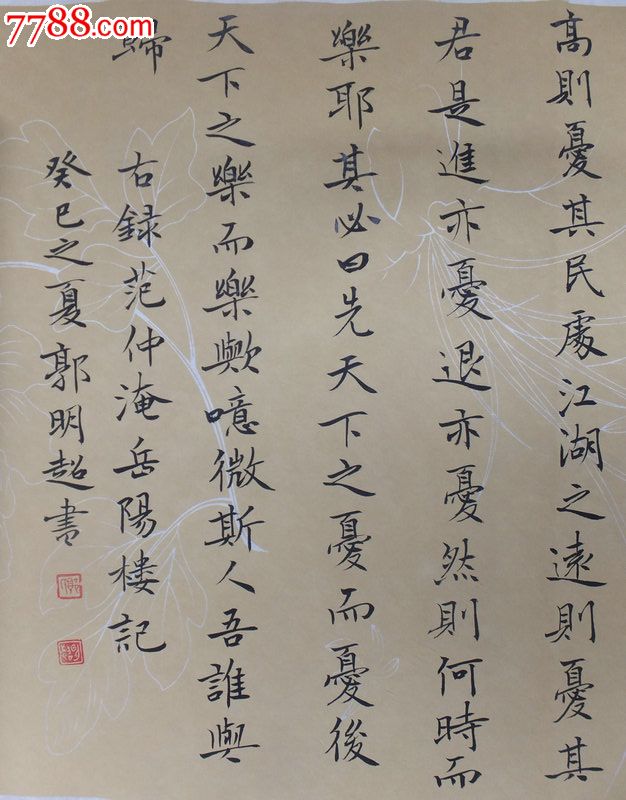 7788.com
高則憂其民處江湖之遠則憂其
君是進亦憂退亦憂然則何時而
樂耶其必曰先天下之憂而憂後
天下之樂而樂歟噫微斯人吾誰與
歸
右録范仲淹岳陽樓記
癸巳之夏郭明超書